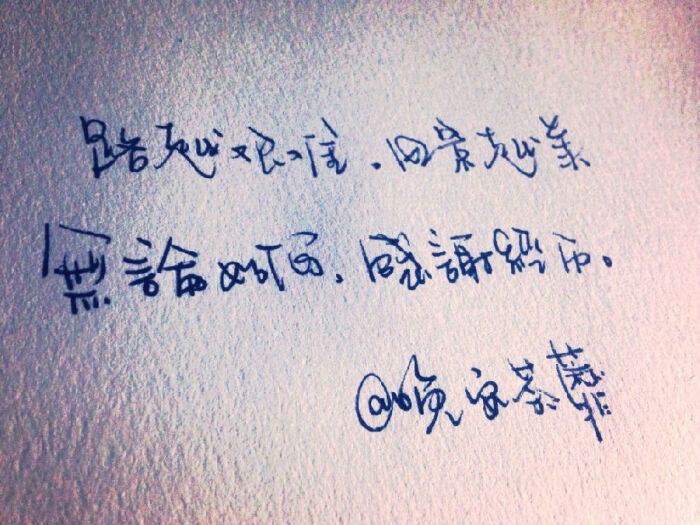 路越艰难，回景越美
無論如何，感謝經历。
@晚安慕